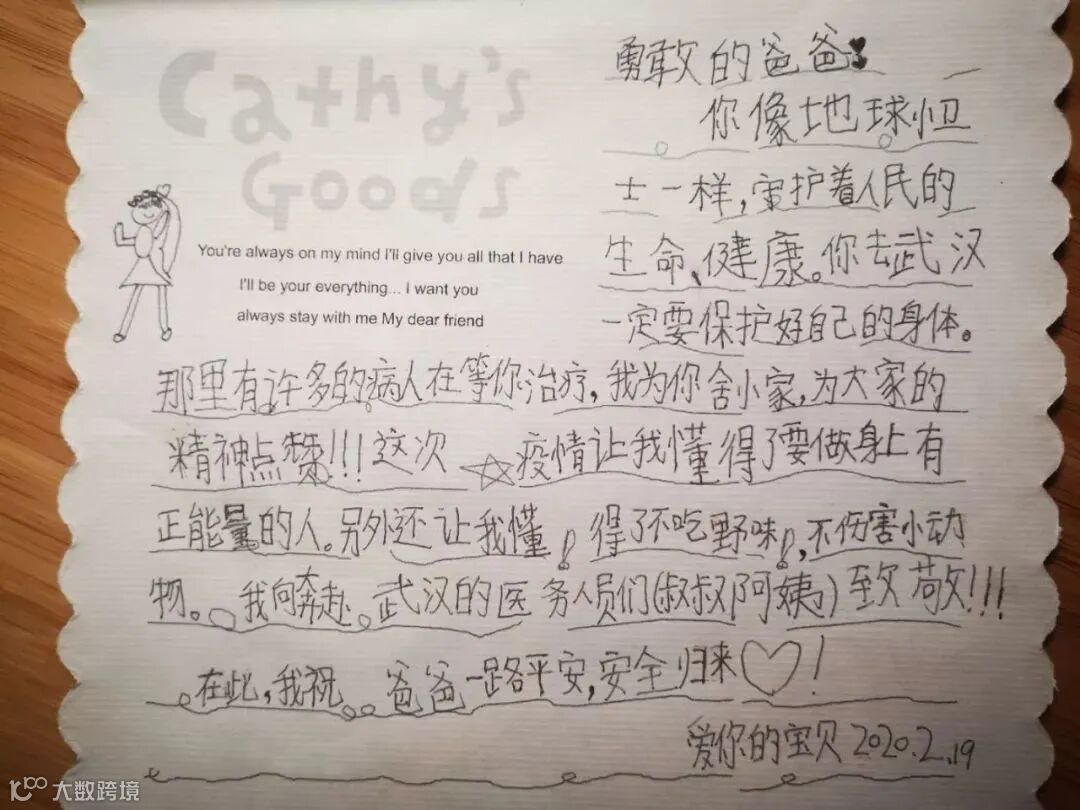 Cathy's
Goods
You're always on my mind I'll give you all that I have
I'll be your everything... I want you
always stay with me My dear friend
勇敢的爸爸:
你像地球小卫
士一样,守护着人民的
生命、健康。你去武汉
一定要保护好自己的身体。
那里有许多的病人在等你治疗,我为你舍小家,为大家的
精神点赞!!!这次☆疫情让我懂得了要做身上有
正能量的人。另外还让我懂!得了不吃野味!,不伤害小动
物。我向奔赴武汉的医务人员们(叔叔阿姨)致敬!!!
在此,我祝爸爸一路平安,安全归来♡!
爱你的宝贝 2020.2.19
大数跨境